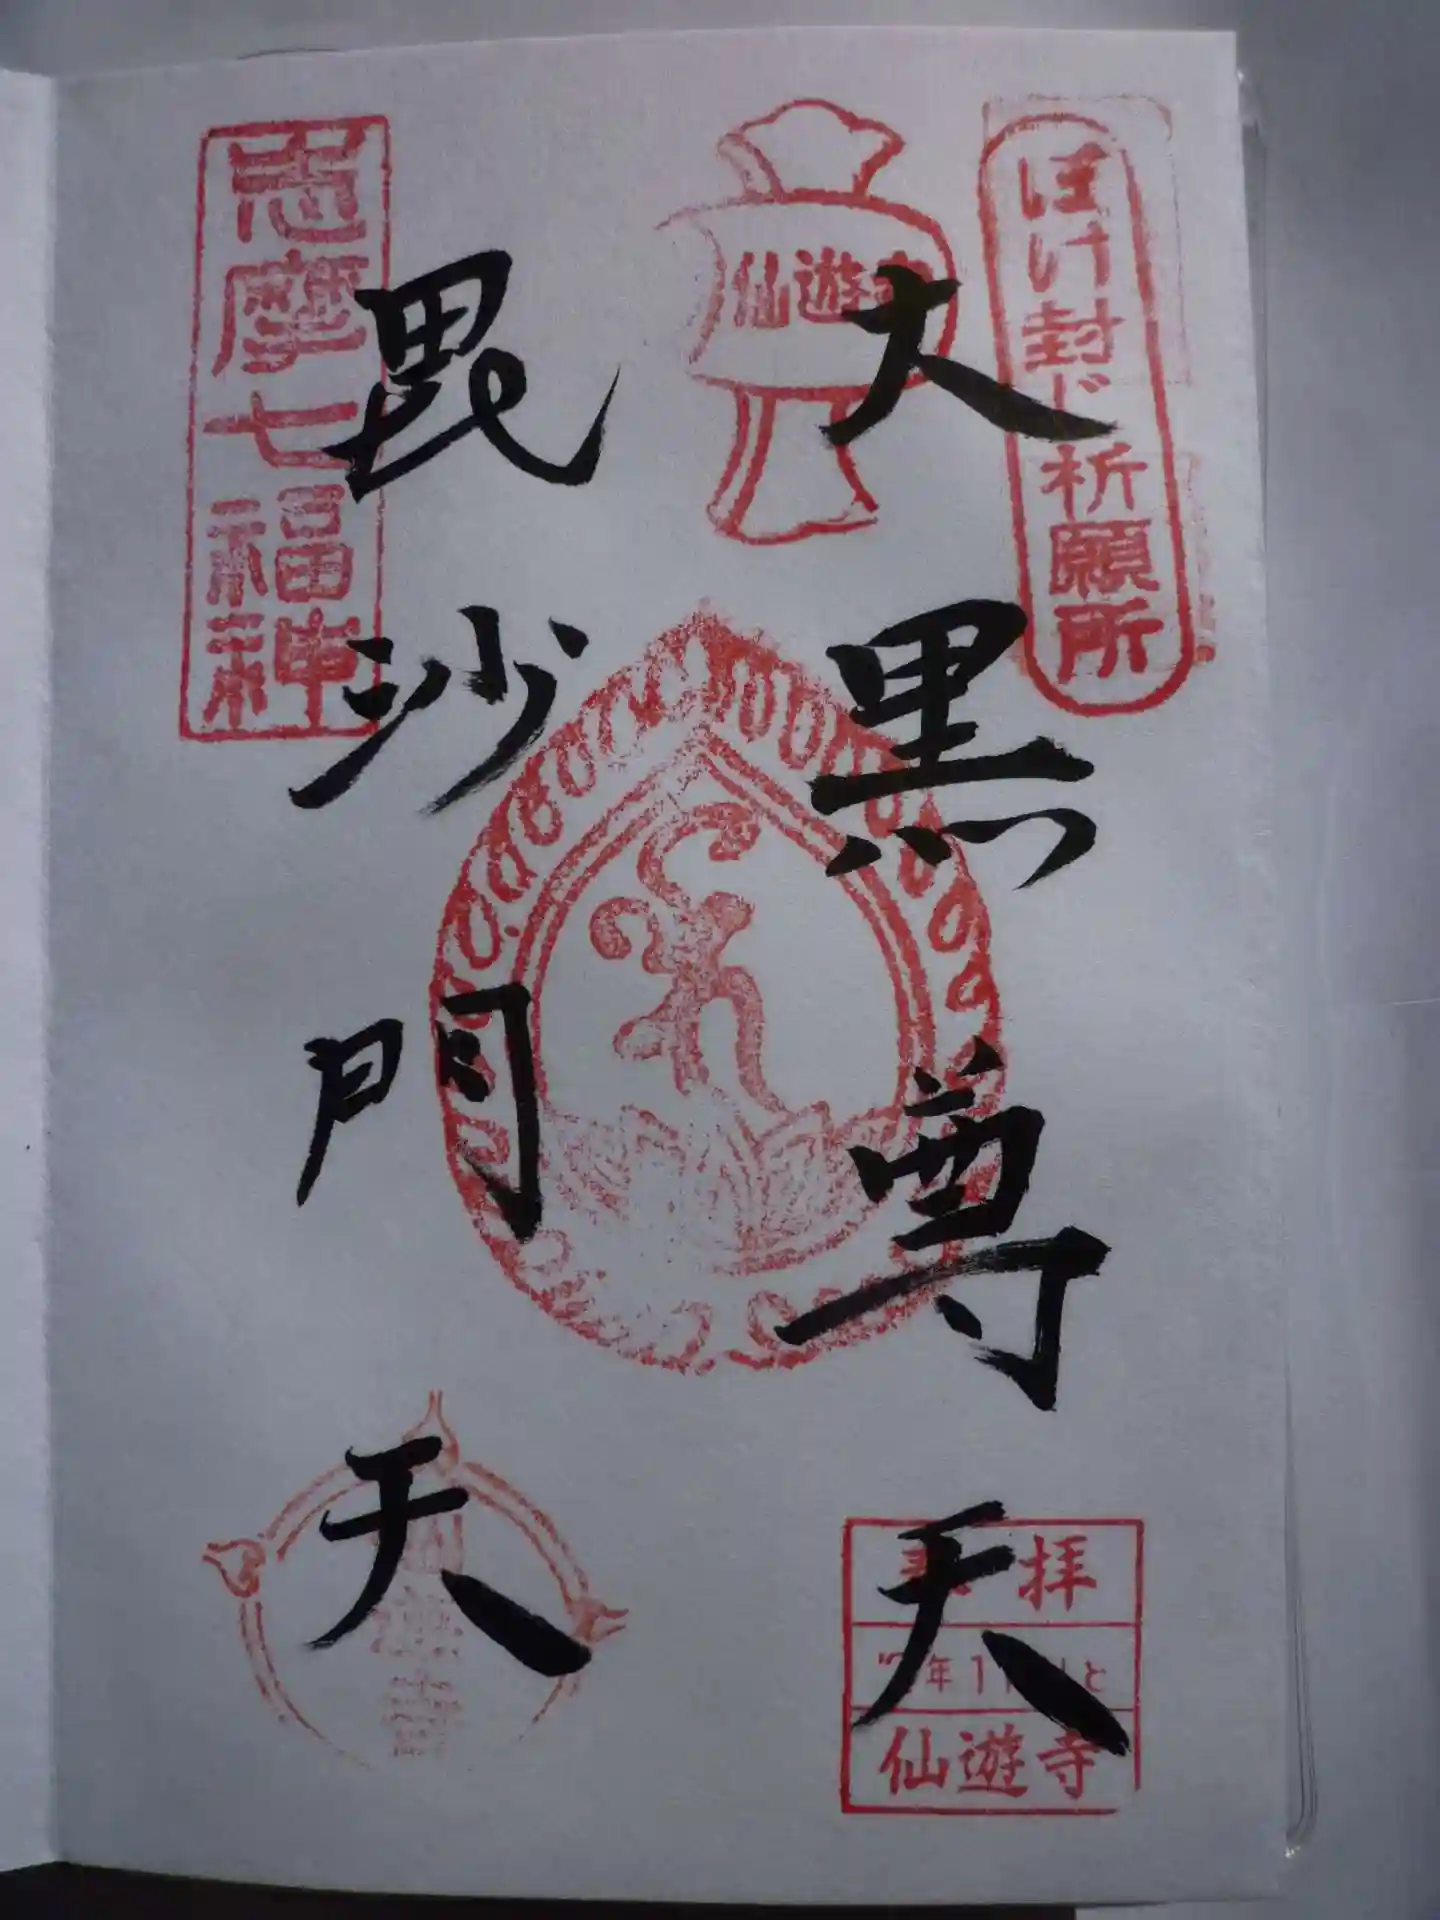 ぼけ封じ祈願所
仙遊寺
大黒尊天
毘沙門天
志摩七福神
奉拝
年1
仙遊寺